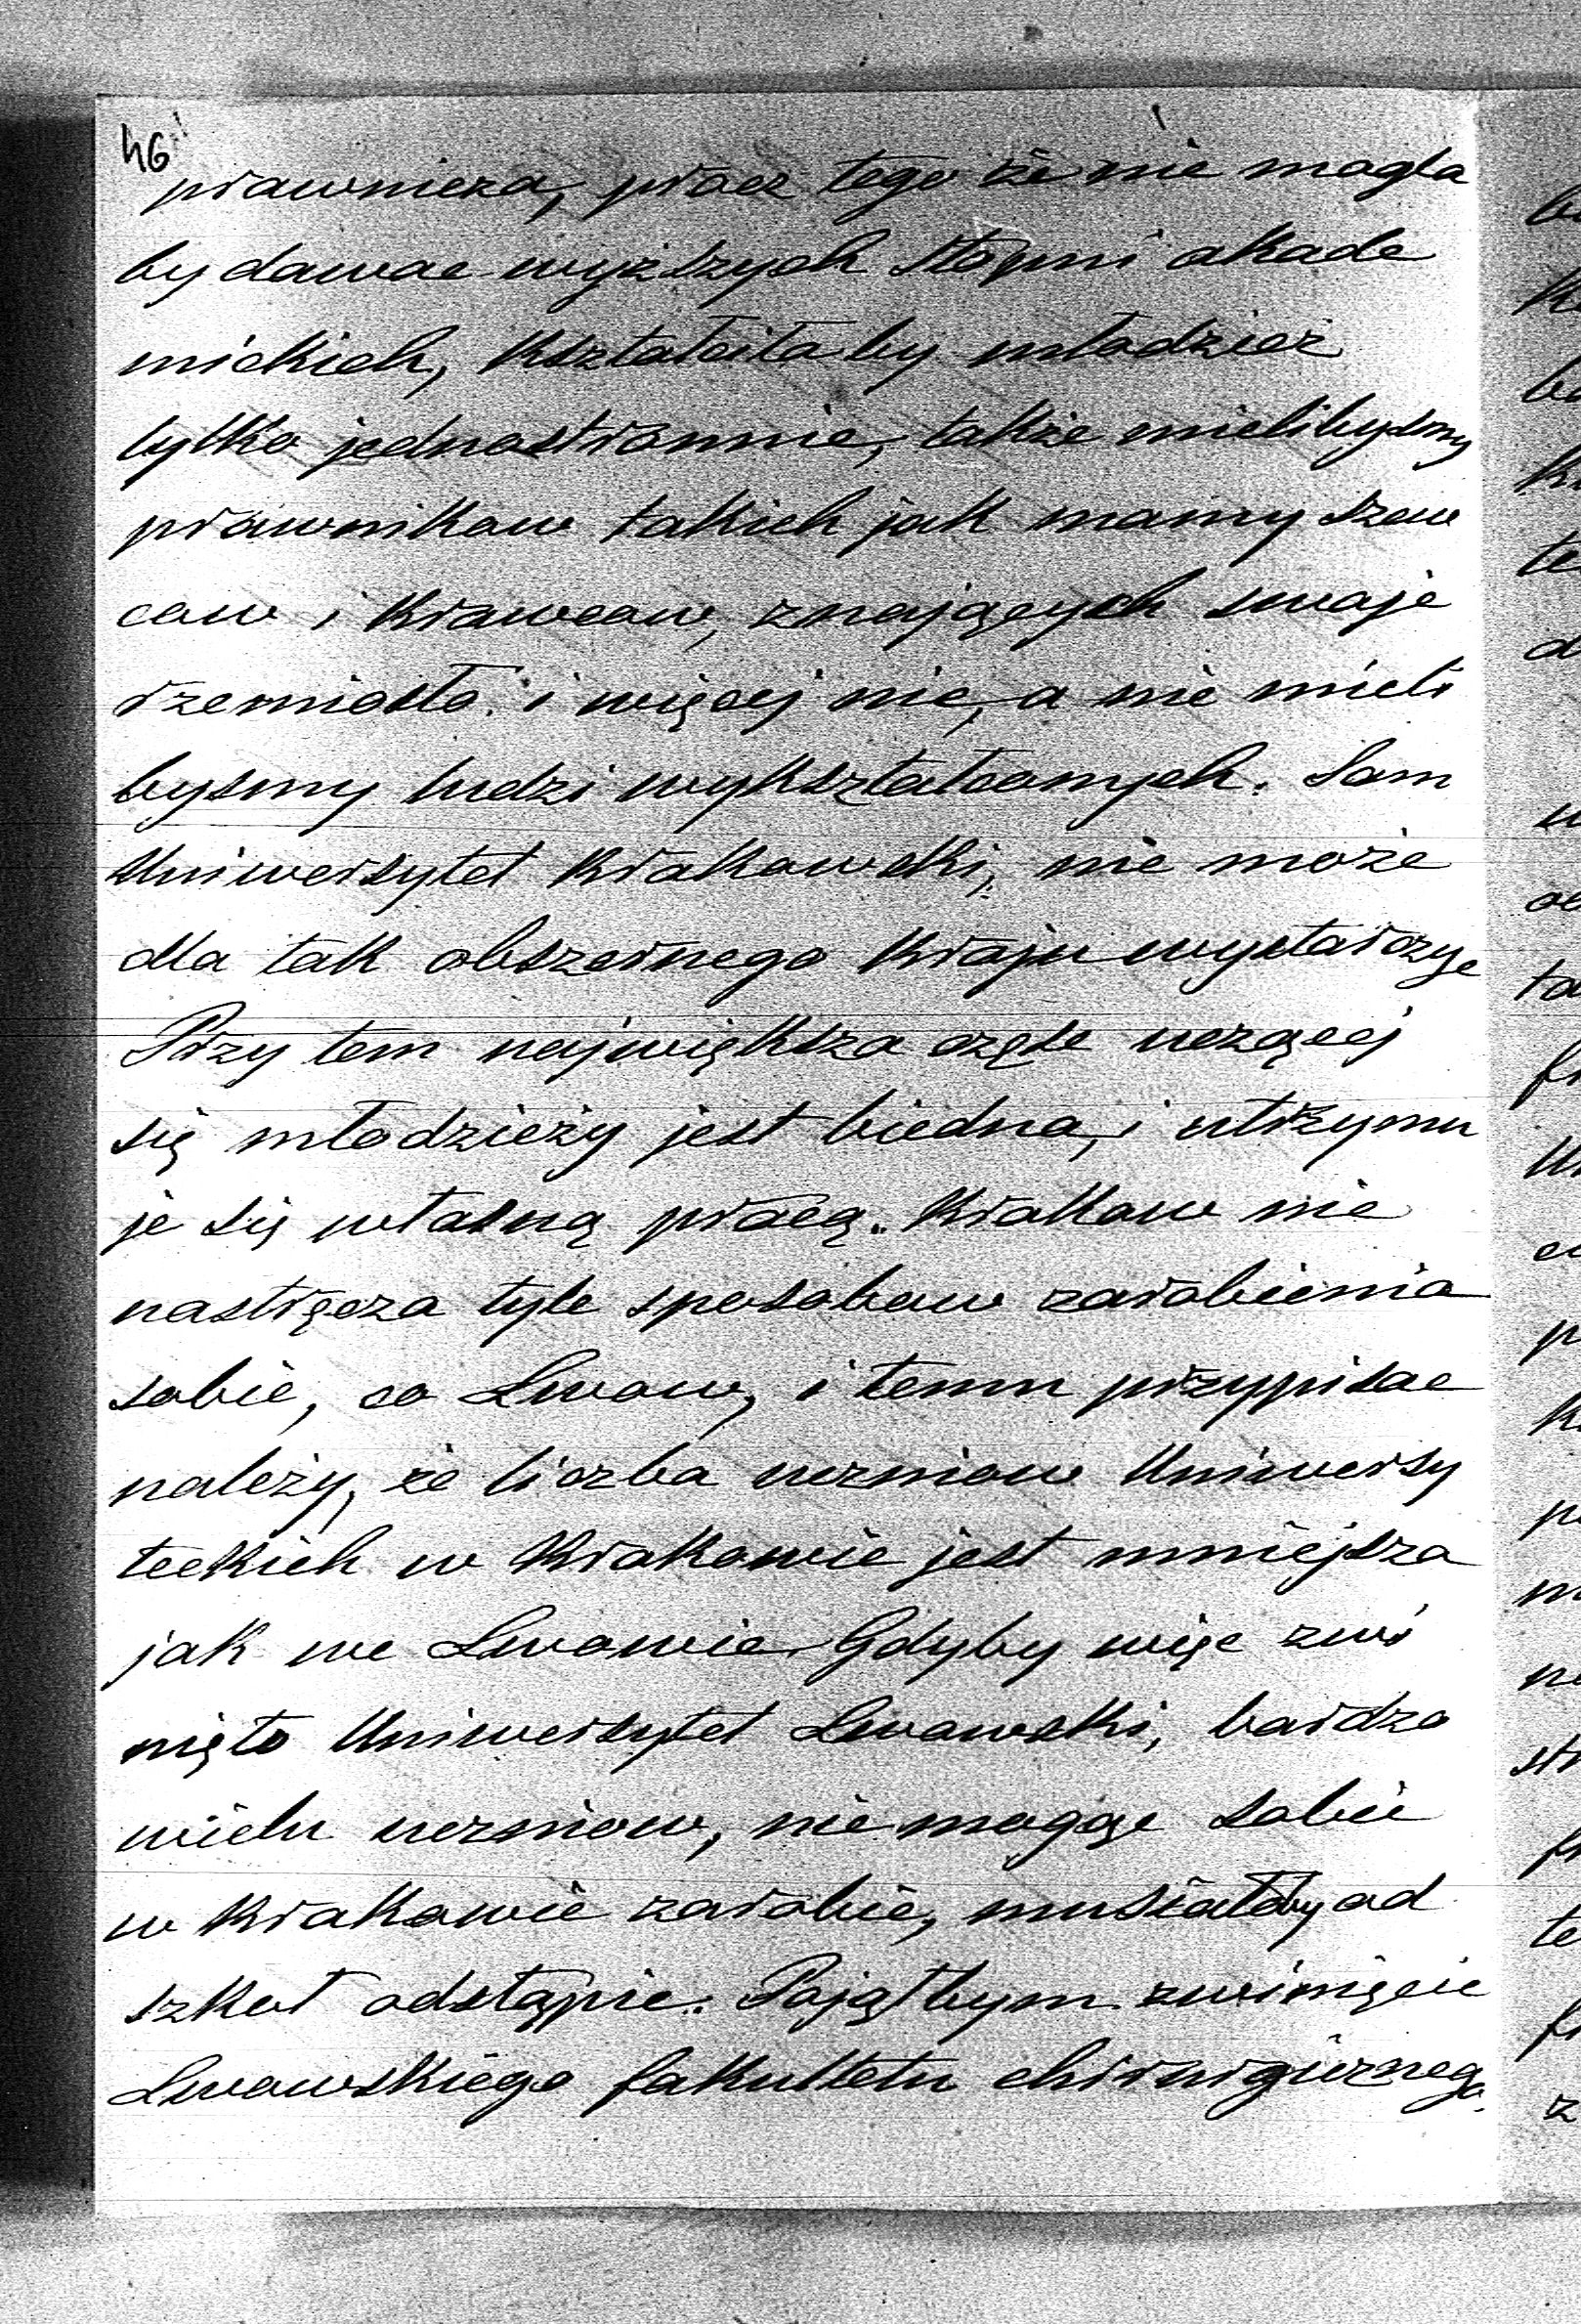 46
prawnicza, procz tego że nie mogła
by dawac wyższych stopni akade
mickich, kształciła by młodzież
tylko jednostronnie, także mielibysmy
prawnikow takich jak mamy szew
cow i krawcow, znających swoje
rzemiosło i więcej nic, a nie mieli
bysmy ludzi wykształconych. Sam
Uniwersytet Krakowski, nie może
dla tak obszernego kraju wystarczyc
Przy tem największa częsc uczącej
się młodzieży jest biedna, i utrzymu
je się własną pracą. Krakow nie
nastręcza tyle sposobow zarobienia
sobie, co Lwow, i temu przypisac
należy, że liczba uczniow Uniwersy
teckich w Krakowie jest mniejsza
jak we Lwowie. Gdyby więc zwi
nięto Uniwersytet Lwowski, bardzo
wielu uczniow, nie mogąc sobie
w Krakowie zarobic, musiałoby od
szkoł odstąpic. Pojąłbym zwinięcie
Lwowskiego fakultetu chirurgicznego.